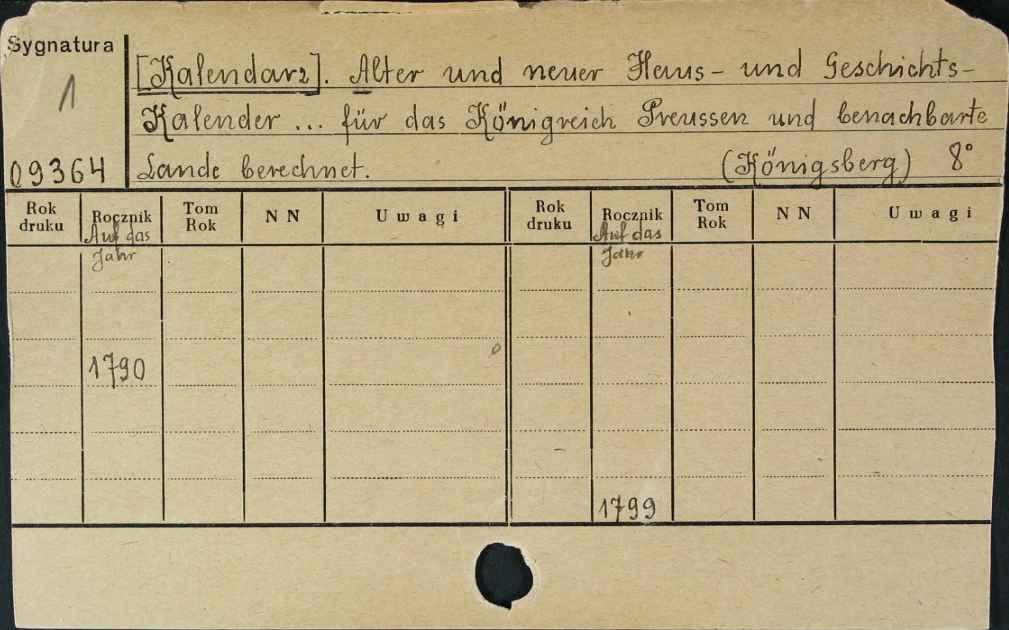 Sygnatura
1
09364
[Kalendarz]. Alter und neuer Haus- und Geschichts-
Kalender ... für das Königreich Preussen und benachbarte
Lande berechnet. (Königsberg) 8°
Rok druku Rocznik Tom Rok N N Uwagi Rok druku Rocznik Tom Rok N N Uwagi
Auf das Auf das
Jahr Jahr
1790
1799